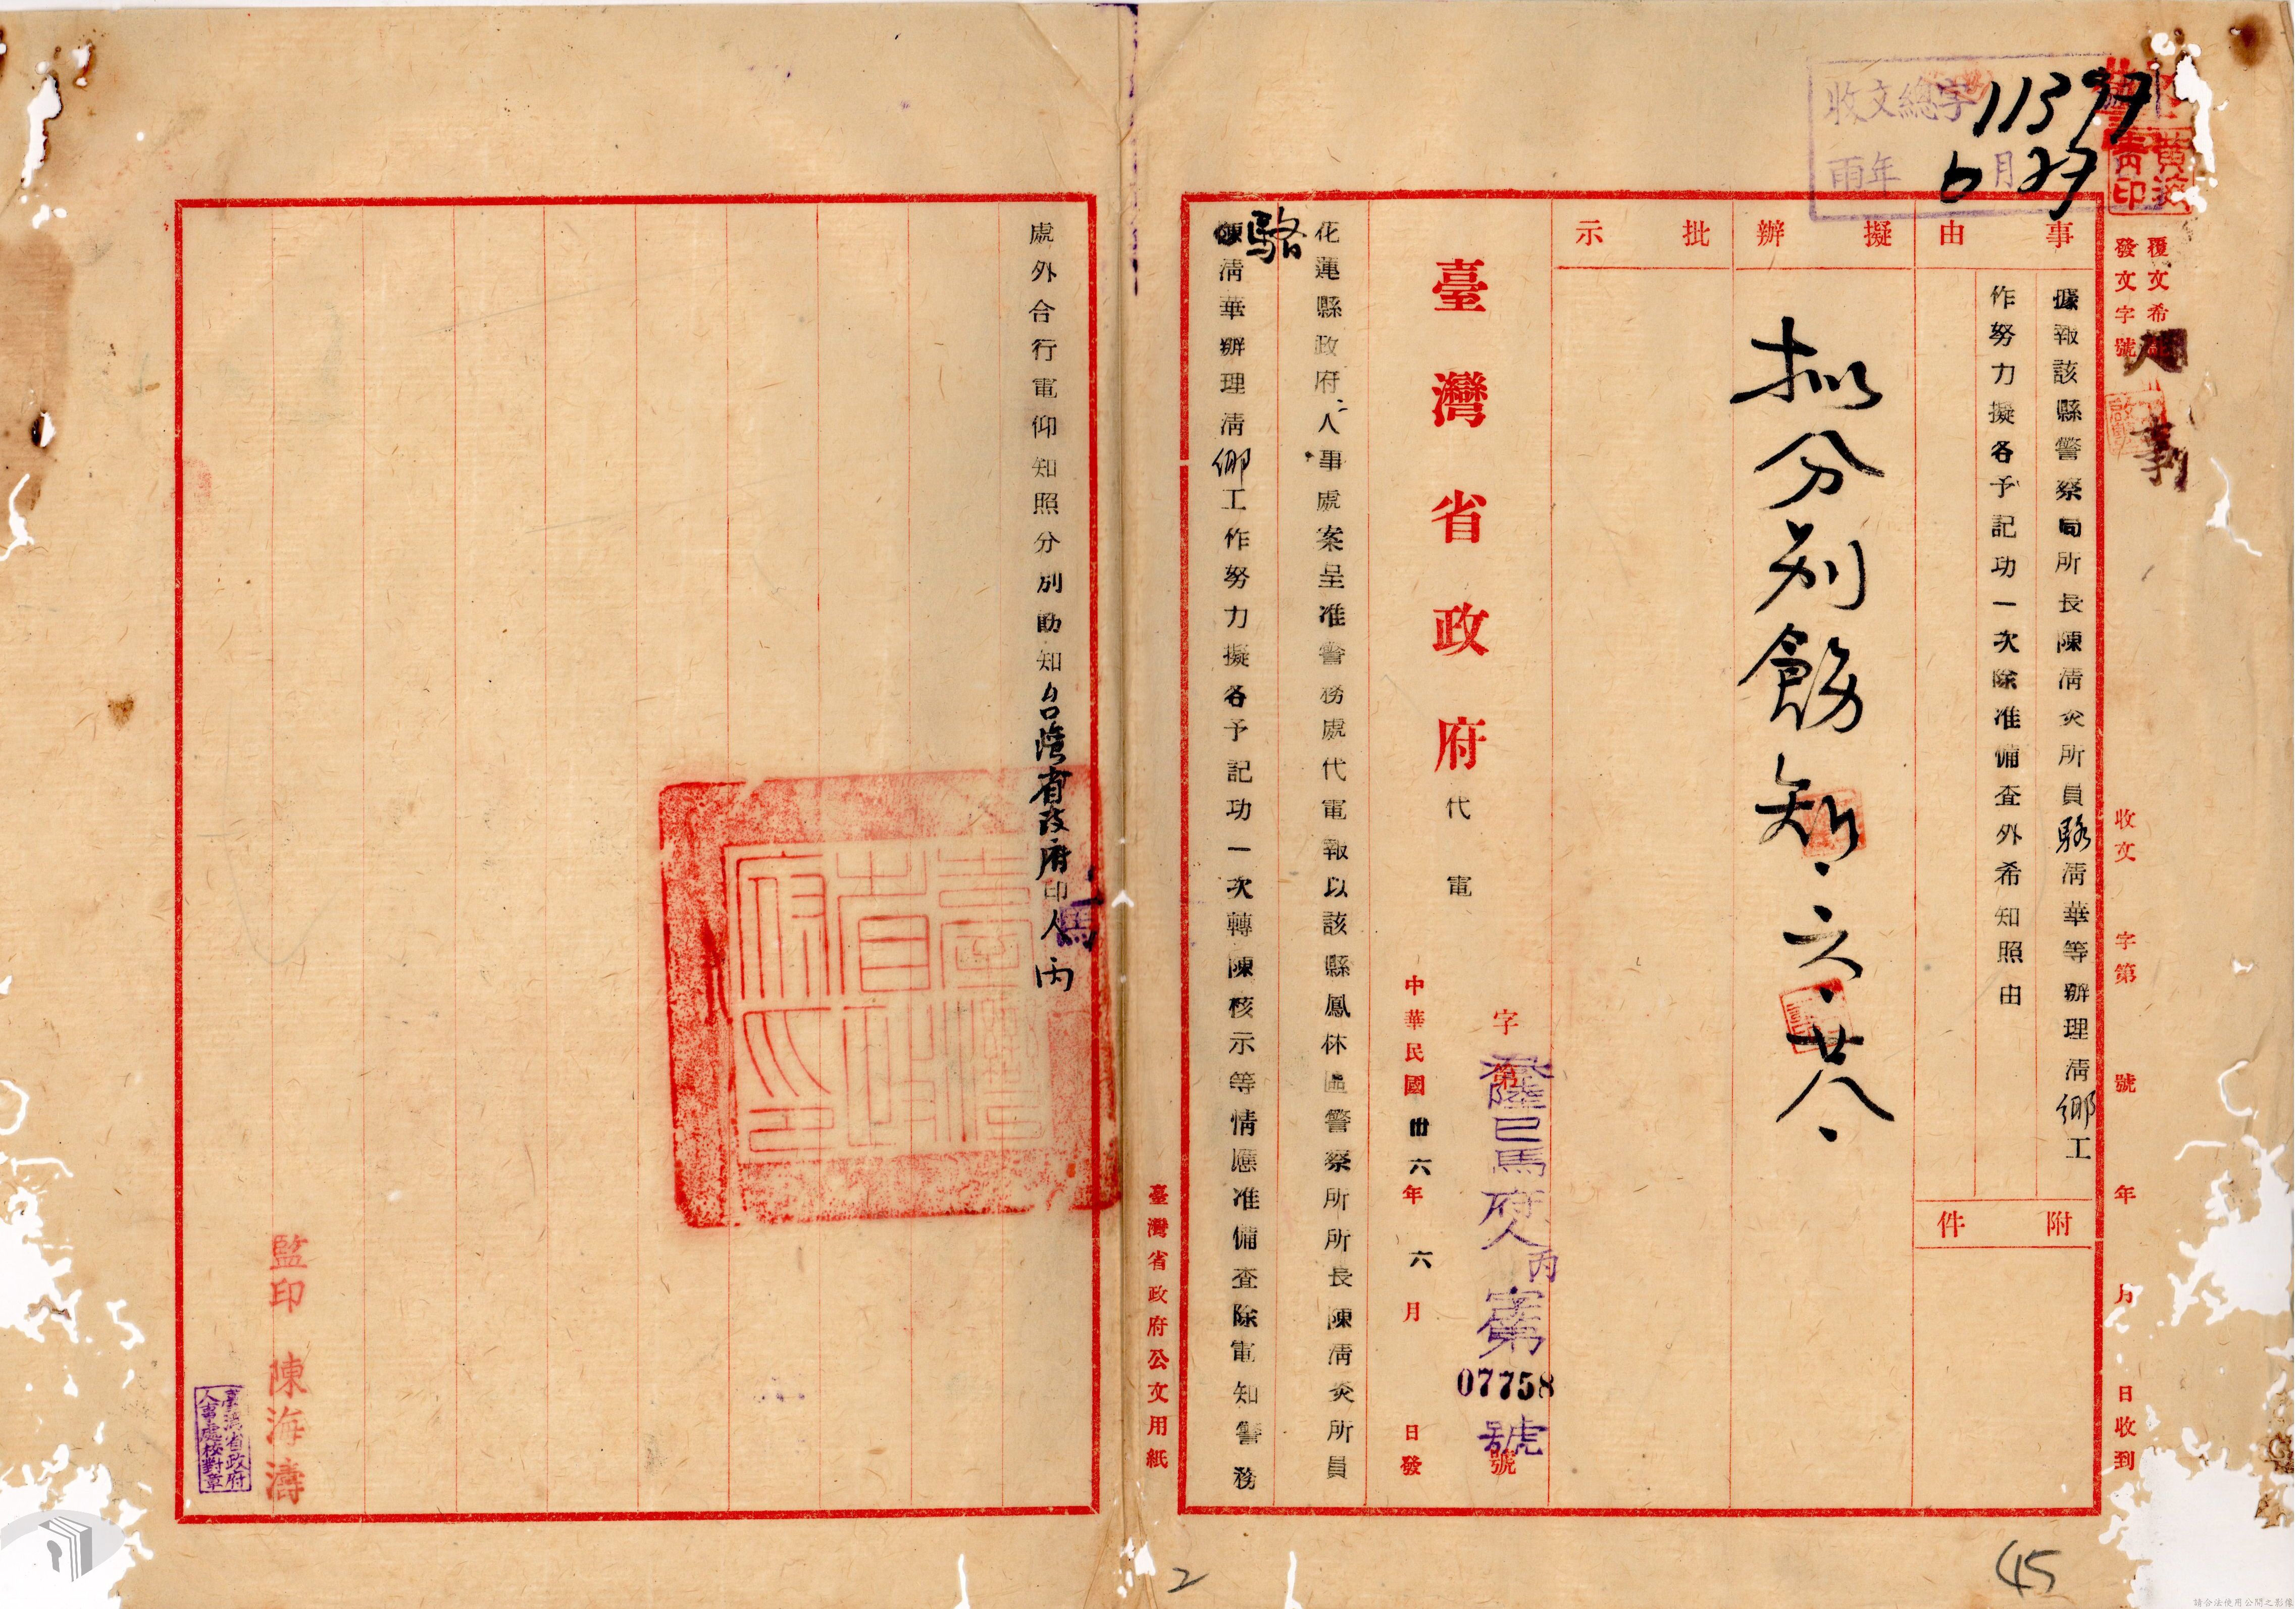 收文總字11397
年6月27
覆文希
發文字號
收文
字第
號
年
月
日收到
事由
據報該縣警察局所長陳清炎所員駱清華等辦理清鄉工
作努力擬各予記功一次除准備查外希知照由
附件
擬辦
批示
拟分别飭知．六．廿八．
臺灣省政府代電
字第
叁陸巳馬府人丙字第07758號
號
中華民國卅六年六月
日發
花蓮縣政府：人事處案呈准警務處代電報以該縣鳳林區警察所所長陳清炎所員
駱清華辦理清鄉工作努力擬各予記功一次轉陳核示等情應准備查除電知警務
臺灣省政府公文用紙
處外合行電仰知照分別勛知台灣省政府印人丙
馬
臺灣省政府印
監印 陳海濤
臺灣省政府
人事處校對章
2
45
請合法使用公開之影像